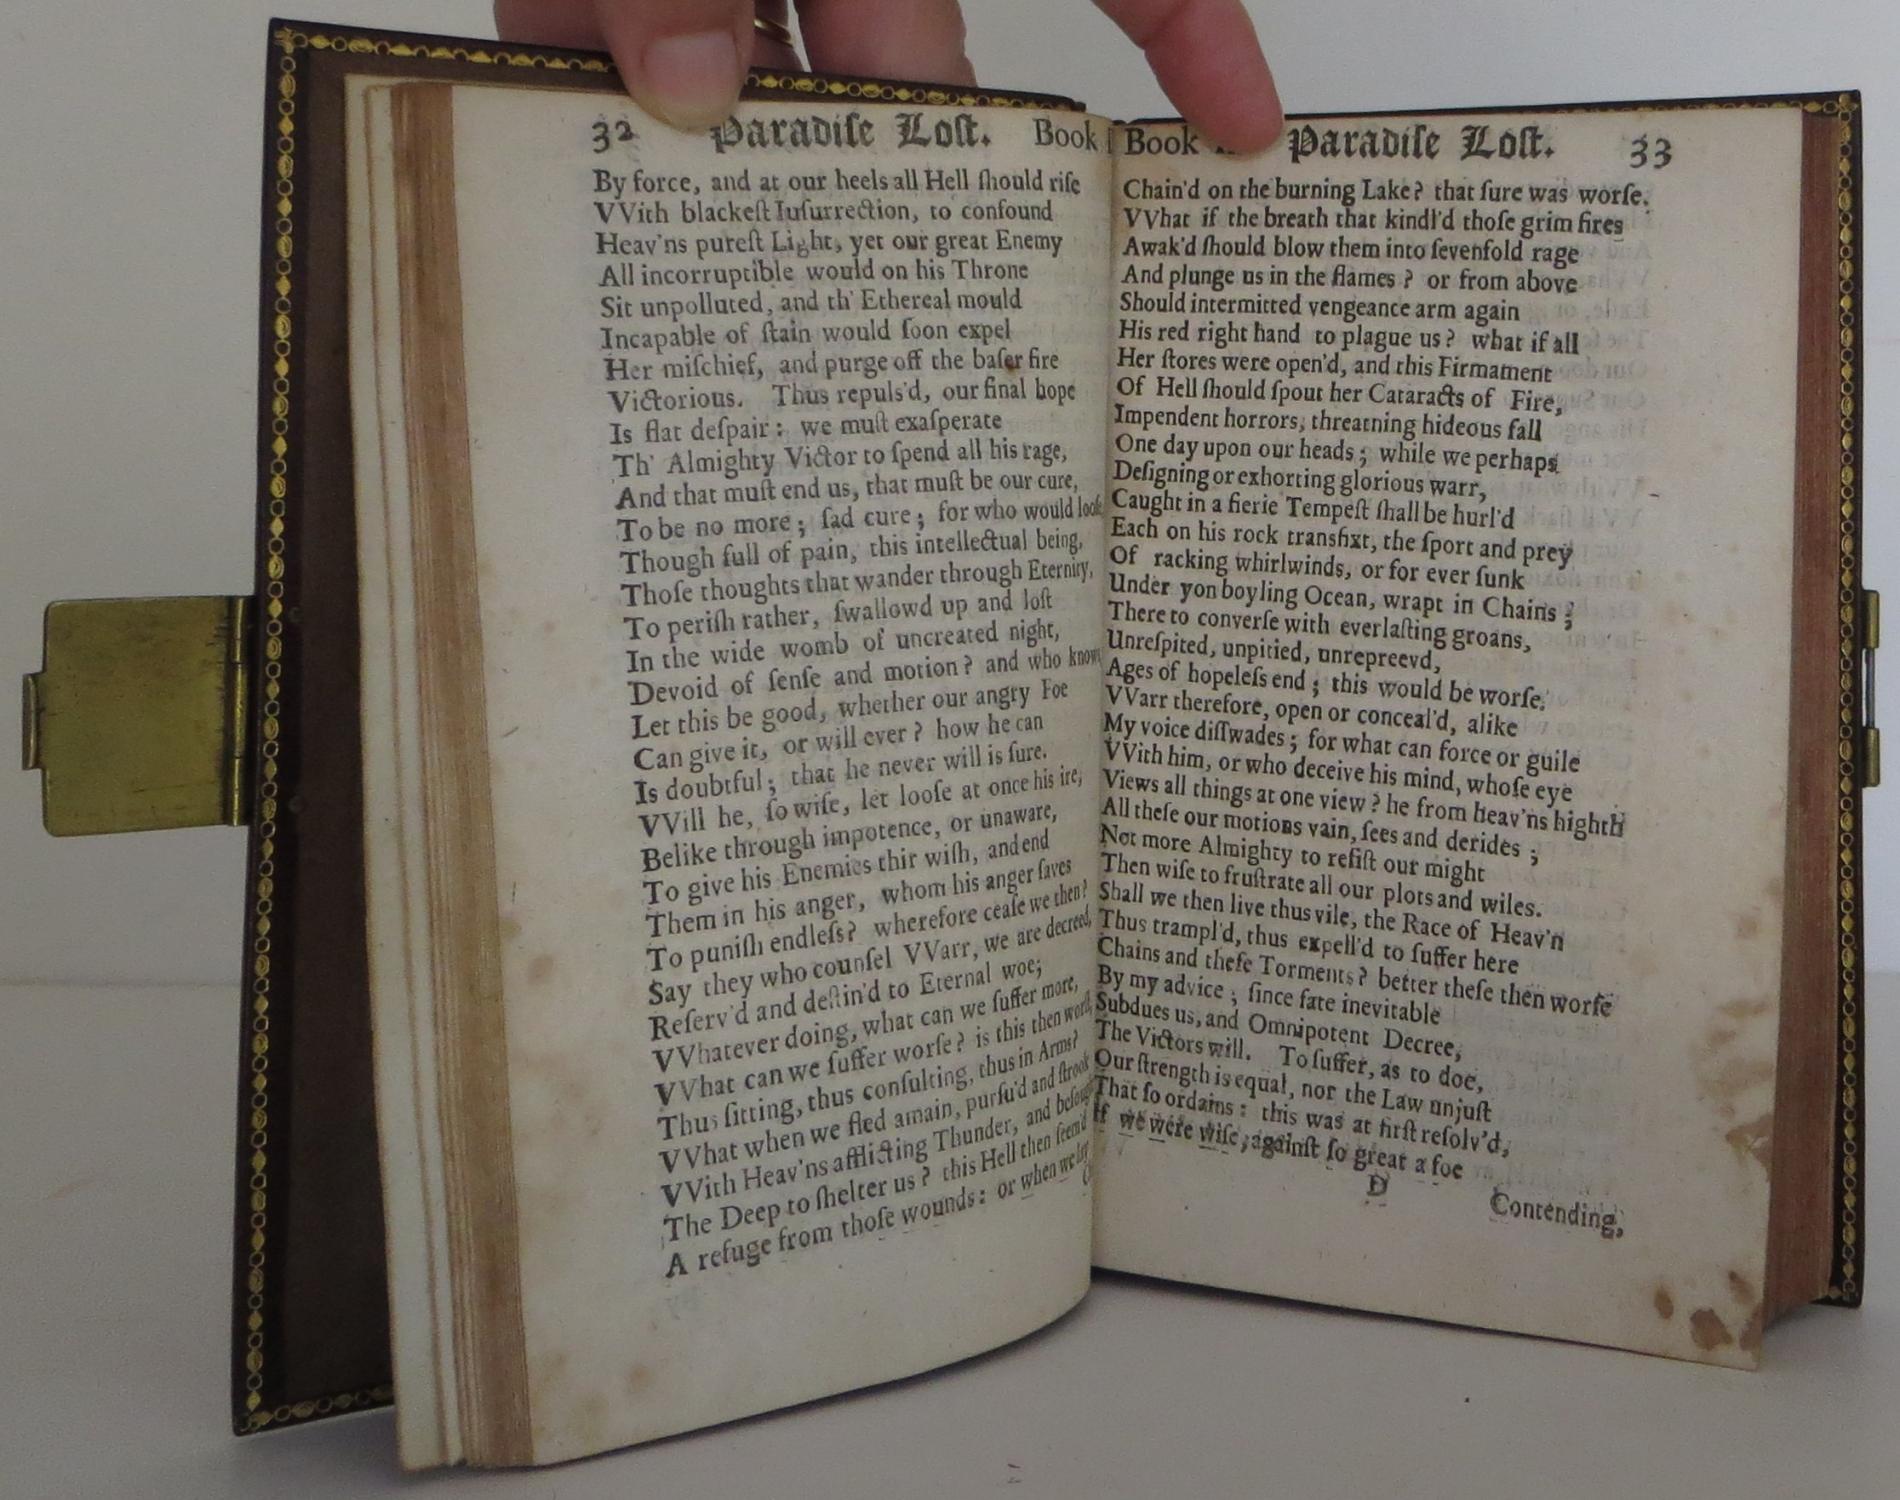 32 Paradiſe Loſt. Book
By force, and at our heels all Hell ſhould riſe
VVith blackeſt Inſurrection, to confound
Heav'ns pureſt Light, yet our great Enemy
All incorruptible would on his Throne
Sit unpolluted, and th' Ethereal mould
Incapable of ſtain would ſoon expel
Her miſchief, and purge off the baſer fire
Victorious. Thus repuls'd, our final hope
Is flat deſpair: we muſt exaſperate
Th' Almighty Victor to ſpend all his rage,
And that muſt end us, that muſt be our cure,
To be no more; ſad cure; for who would looſe
Though full of pain, this intellectual being,
Thoſe thoughts that wander through Eternity,
To periſh rather, ſwallowd up and loſt
In the wide womb of uncreated night,
Devoid of ſenſe and motion? and who knows
Let this be good, whether our angry Foe
Can give it, or will ever? how he can
Is doubtful; that he never will is ſure.
VVill he, ſo wiſe, let looſe at once his ire,
Belike through impotence, or unaware,
To give his Enemies thir wiſh, and end
Them in his anger, whom his anger ſaves
To puniſh endleſs? wherefore ceaſe we then?
Say they who counſel VVarr, we are decreed,
Reſerv'd and deſtin'd to Eternal woe;
VVhatever doing, what can we ſuffer more,
VVhat can we ſuffer worſe? is this then worſt,
Thus ſitting, thus conſulting, thus in Arms?
VVhat when we fled amain, purſu'd and ſtrook
VVith Heav'ns afflicting Thunder, and beſought
The Deep to ſhelter us? this Hell then ſeem'd
A refuge from thoſe wounds: or when we lay
Book Paradiſe Loſt. 33
Chain'd on the burning Lake? that ſure was worſe.
VVhat if the breath that kindl'd thoſe grim fires
Awak'd ſhould blow them into ſevenfold rage
And plunge us in the flames? or from above
Should intermitted vengeance arm again
His red right hand to plague us? what if all
Her ſtores were open'd, and this Firmament
Of Hell ſhould ſpout her Cataracts of Fire,
Impendent horrors, threatning hideous fall
One day upon our heads; while we perhaps
Deſigning or exhorting glorious warr,
Caught in a fierie Tempeſt ſhall be hurl'd
Each on his rock transfixt, the ſport and prey
Of racking whirlwinds, or for ever ſunk
Under yon boyling Ocean, wrapt in Chains;
There to converſe with everlaſting groans,
Unreſpited, unpitied, unrepreevd,
Ages of hopeleſs end; this would be worſe.
VVarr therefore, open or conceal'd, alike
My voice diſſwades; for what can force or guile
VVith him, or who deceive his mind, whoſe eye
Views all things at one view? he from heav'ns highth
All theſe our motions vain, ſees and derides;
Not more Almighty to reſiſt our might
Then wiſe to fruſtrate all our plots and wiles.
Shall we then live thus vile, the Race of Heav'n
Thus trampl'd, thus expell'd to ſuffer here
Chains and theſe Torments? better theſe then worſe
By my advice; ſince fate inevitable
Subdues us, and Omnipotent Decree,
The Victors will. To ſuffer, as to doe,
Our ſtrength is equal, nor the Law unjuſt
That ſo ordains: this was at firſt reſolv'd,
If we were wiſe, againſt ſo great a foe
D
Contending,